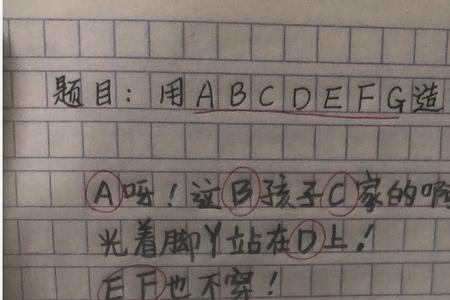 题目：用ABCDEFG造
A呀！这B孩子C家的啊
光着脚丫站在D上！
EF也不穿！